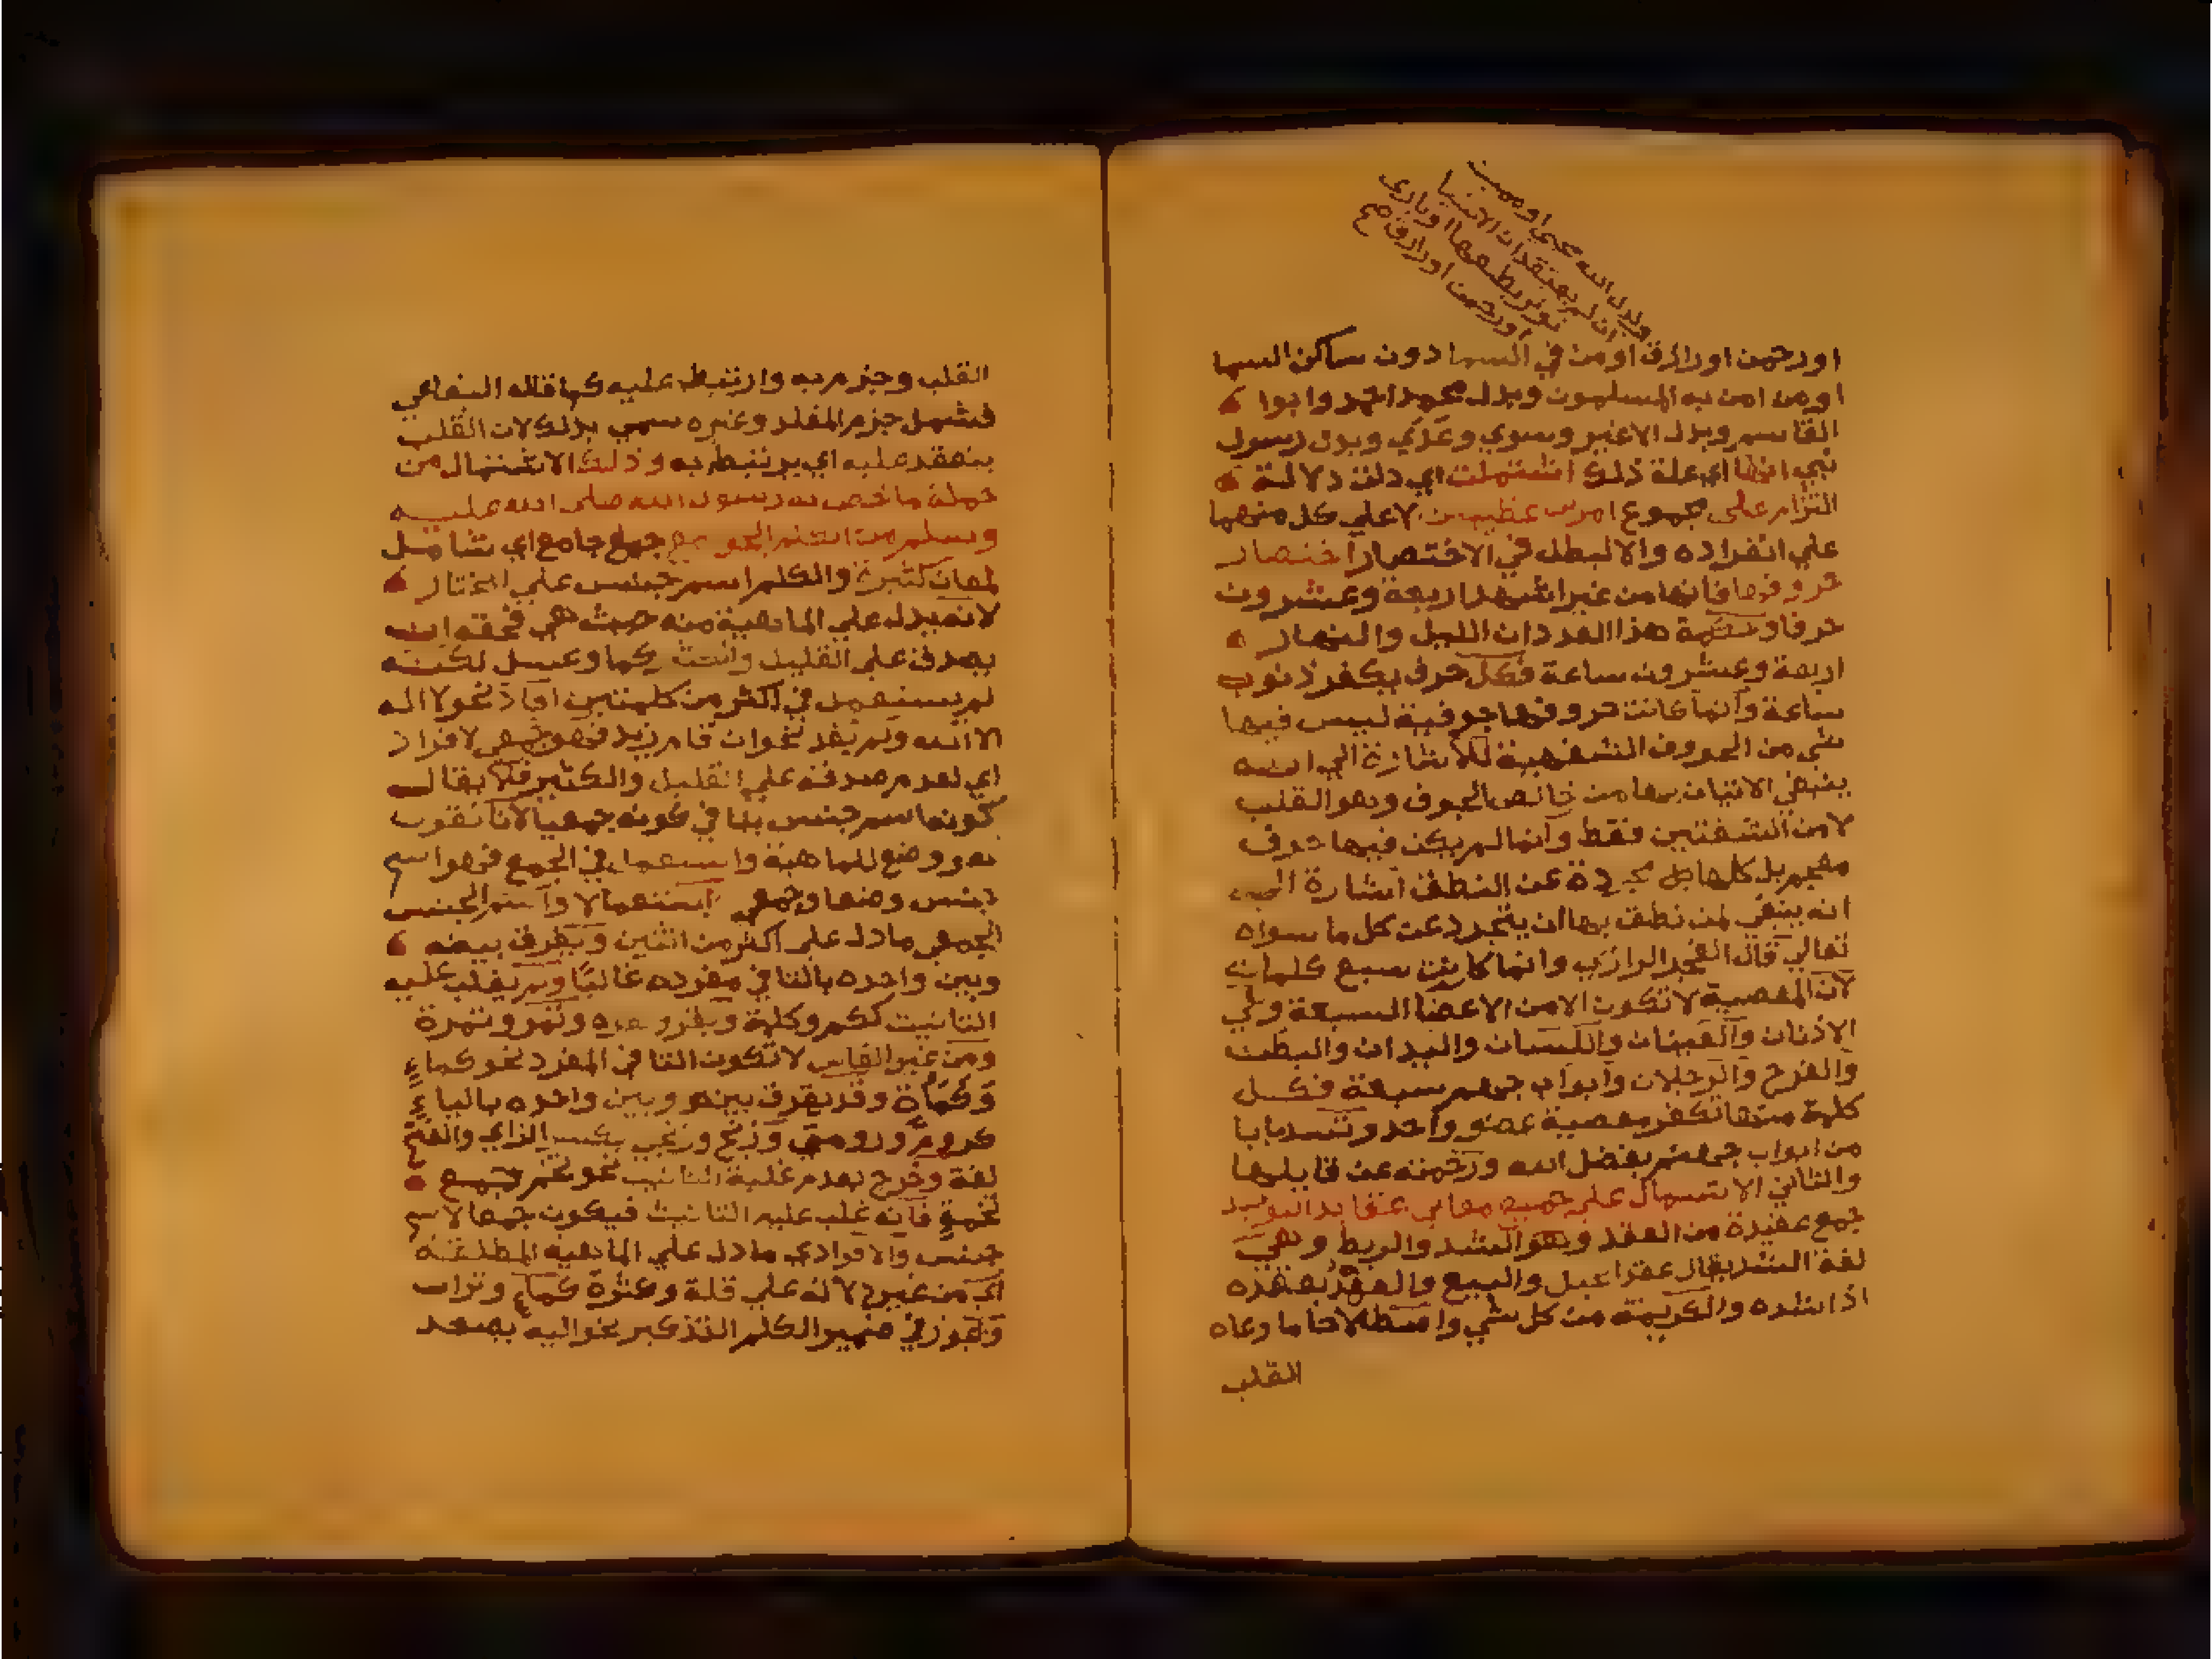 وبدل الله محيي او مميت
ان لم يعتقد ان الانبيا
تؤثر بطبعها او باري
او رحمن او رازق صح
او رحمن او رازق او من في السما دون ساكن السما
او من امن به المسلمون وبدل محمد احمد وابوا
القاسم وبدل الا غير وسوي وعدي وبدل رسول
نبي انها اي علة ذلك اشتملت اي دلت دلالة
التزام على مجموع امرين عظيمين لا علي كل منهما
علي انفراده والا لبطل في الاختصار اختصار
حروفها فانها من غير اشهد اربعة وعشرون
حرفا وحكمة هذا العدد ان الليل والنهار
اربعة وعشرون ساعة فكل حرف يكفر ذنوب
ساعة وانما كانت حروفها جوفية ليس فيها
شي من الحروف الشفهية للاشارة الي انه
ينبغي الاتيان بها من خالص الجوف وهو القلب
لا من الشفتين فقط وانما لم يكن فيها حرف
معجم بل كلها مجردة عن النطق اشارة الي
انه ينبغي لمن نطق بها ان يتجرد عن كل ما سواه
تعالي قال الفخر الرازي وانما كانت سبع كلمات
لان المعصية لا تكون الا من الاعضا السبعة وهي
الاذنان والعينان واللسان واليدان والبطن
والفرج والرجلان وابواب جهنم سبعة فكل
كلمة منها تكفر معصية عضو واحد وتسد بابا
من ابواب جهنم بفضل الله ورحمته عن قايلها
والثاني الاشتمال علي جميع معاني عقايد التوحيد
جمع عقيدة من العقد وهو الشد والربط وهي
لغة الشد يقال عقد الحبل والبيع والعهد يعقده
اذا شده والكريمة من كل شي واصطلاحا ما وعاه
القلب
القلب وجزم به وارتبط عليه كما قاله البقاعي
فشمل جزم المقلد وغيره سمي بذلك لان القلب
ينعقد عليه اي يرتبط به وذلك الاشتمال من
جملة ما خص به رسول الله صلى الله عليه
وسلم من الكلم الجوامع جمع جامع اي شامل
لمعان كثيرة والكلم اسم جنس علي المختار
لانه يدل علي الماهية من حيث هي فحقه ان
يصدق علي القليل والكثير كما وعسل لكنه
لم يستعمل في اكثر من كلمتين افاد نحو لا اله
الا الله ولم يفد نحو ان قام زيد فهو جمعي لا افرادي
اي لعدم صدقه علي القليل والكثير فلا يقال
كونه اسم جنس ينافي كونه جمعيا لانا نقول
هو وضع للماهية واستعمل في الجمع فهو اسم
جنس وضعا وجمعي استعمالا واسم الجنس
الجمعي ما دل علي اكثر من اثنين ويفرق بينه
وبين واحده بالتا في مفرده غالبا ولم يغلب عليه
التانيث ككلم وكلمة وبقر وبقرة وتمر وتمرة
ومن غير الغالب لا تكون التا في المفرد نحو كماء
وكماة وقد يفرق بينه وبين واحده بالياء
كروم ورومي وزنج وزنجي بكسر الزاي والفتح
لغة وخرج بعدم غلبة التانيث نحو تخم جمع
تخمة فانه غلب عليه التانيث فيكون جمعا لا اسم
جنس والافرادي ما دل علي الماهية المطلقة
اي من غير دلالة علي قلة وكثرة كماء وتراب
ويجوز في ضمير الكلم التذكير نحو اليه يصعد